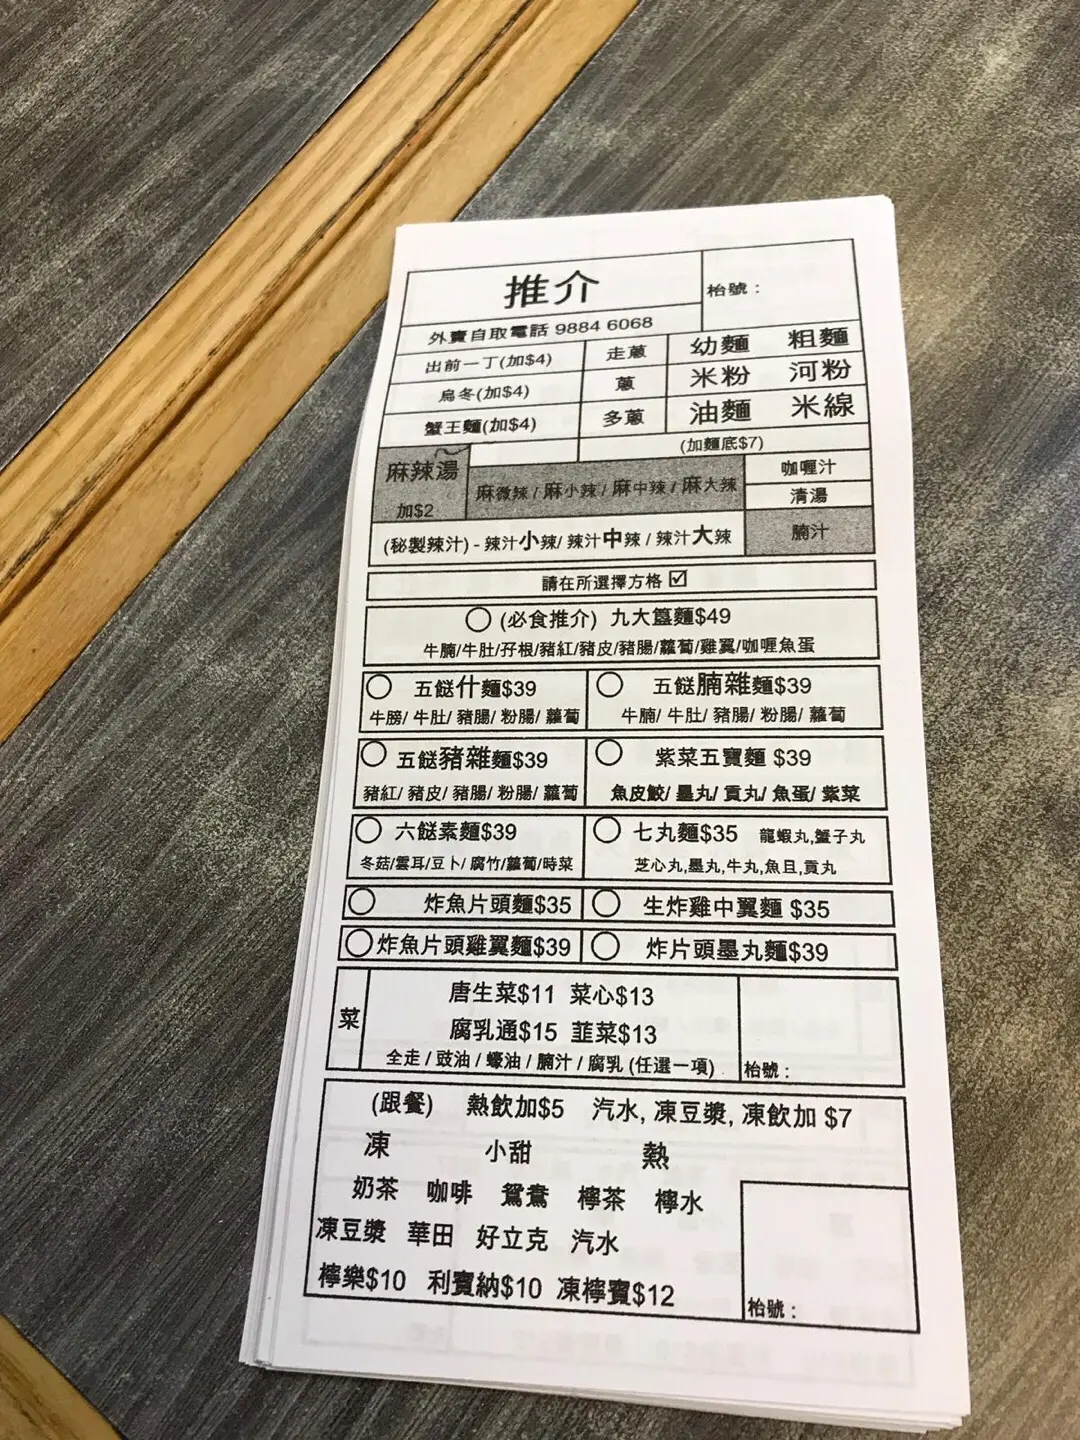 推介
枱號：
外賣自取電話 9884 6068
出前一丁(加$4) 走蔥 幼麵 粗麵
烏冬(加$4) 蔥 米粉 河粉
蟹王麵(加$4) 多蔥 油麵 米線
(加麵底$7)
麻辣湯 麻微辣 / 麻小辣 / 麻中辣 / 麻大辣 咖喱汁
加$2 清湯
(秘製辣汁) - 辣汁小辣/ 辣汁中辣 / 辣汁大辣 腩汁
請在所選擇方格 ☑
(必食推介) 九大簋麵$49
牛腩/牛肚/孖根/豬紅/豬皮/豬腸/蘿蔔/雞翼/咖喱魚蛋
五餸什麵$39 五餸腩雜麵$39
牛膀/ 牛肚/ 豬腸/ 粉腸/ 蘿蔔 牛腩/ 牛肚/ 豬腸/ 粉腸/ 蘿蔔
五餸豬雜麵$39 紫菜五寶麵 $39
豬紅/ 豬皮/ 豬腸/ 粉腸/ 蘿蔔 魚皮餃/ 墨丸/ 貢丸/ 魚蛋/ 紫菜
六餸素麵$39 七丸麵$35 龍蝦丸,蟹子丸
冬菇/雲耳/豆卜/ 腐竹/蘿蔔/時菜 芝心丸,墨丸,牛丸,魚旦,貢丸
炸魚片頭麵$35 生炸雞中翼麵 $35
炸魚片頭雞翼麵$39 炸片頭墨丸麵$39
菜 唐生菜$11 菜心$13
腐乳通$15 韮菜$13
全走 / 豉油 / 蠔油 / 腩汁 / 腐乳 (任選一項) 枱號：
(跟餐) 熱飲加$5 汽水, 凍豆漿, 凍飲加 $7
凍 小甜 熱
奶茶 咖啡 鴛鴦 檸茶 檸水
凍豆漿 華田 好立克 汽水
檸樂$10 利賓納$10 凍檸賓$12
枱號：